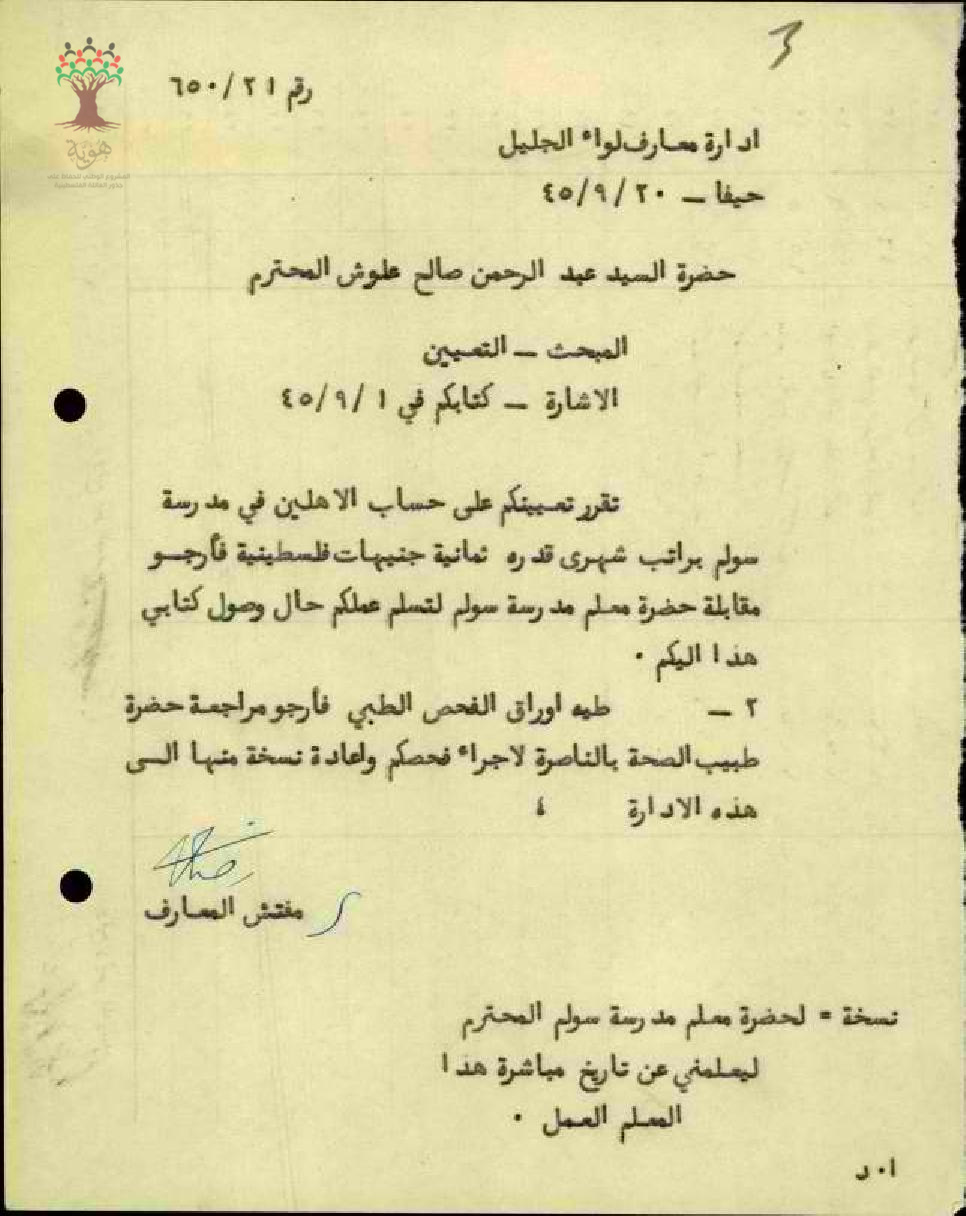 3
رقم ٦٥٠/٢١
هوية
المشروع الوطني للحفاظ على
جذور العائلة الفلسطينية
ادارة معارف لواء الجليل
حيفا — ٤٥/٩/٢٠
حضرة السيد عبد الرحمن صالح علوش المحترم
المبحث — التعيين
الاشارة — كتابكم في ٤٥/٩/١
تقرر تعيينكم على حساب الاهلين في مدرسة
سولم براتب شهرى قدره ثمانية جنيهات فلسطينية فأرجو
مقابلة حضرة معلم مدرسة سولم لتسلم عملكم حال وصول كتابي
هذا اليكم .
٢ — طيه اوراق الفحص الطبي فأرجو مراجعة حضرة
طبيب الصحة بالناصرة لاجراء فحصكم واعادة نسخة منها الى
هذه الادارة ؛
مفتش المعارف
نسخة = لحضرة معلم مدرسة سولم المحترم
ليعلمني عن تاريخ مباشرة هذا
المعلم العمل .
ا٠د